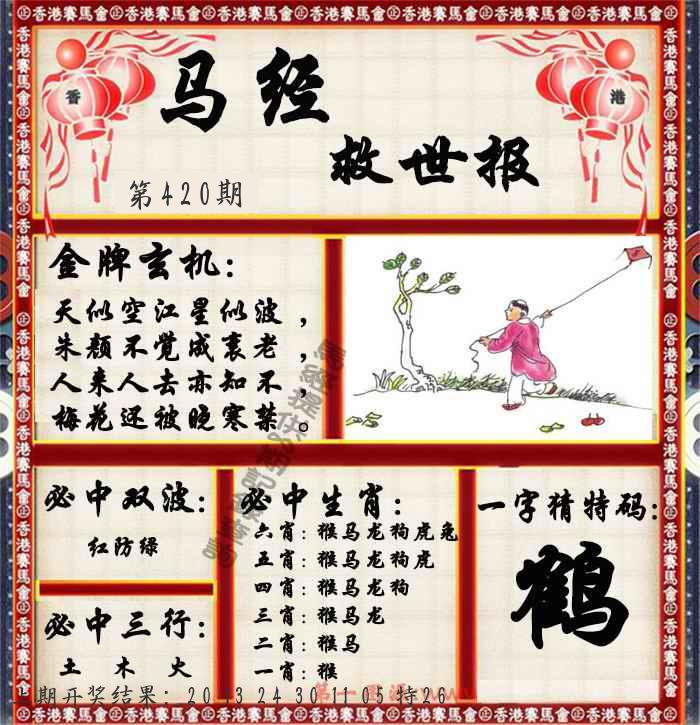 香港賽馬會
香 港
马经
救世报
第420期
金牌玄机：
天似空江星似波，
朱颜不觉成衰老，
人来人去亦知不，
梅花还被晚寒禁。
必中双波：
红防绿
必中三行：
土 木 火
必中生肖：
六肖：猴马龙狗虎兔
五肖：猴马龙狗虎
四肖：猴马龙狗
三肖：猴马龙
二肖：猴马
一肖：猴
一字猜特码：
鹤
期开奖结果：20 43 24 30 11 05 特26
第一图源